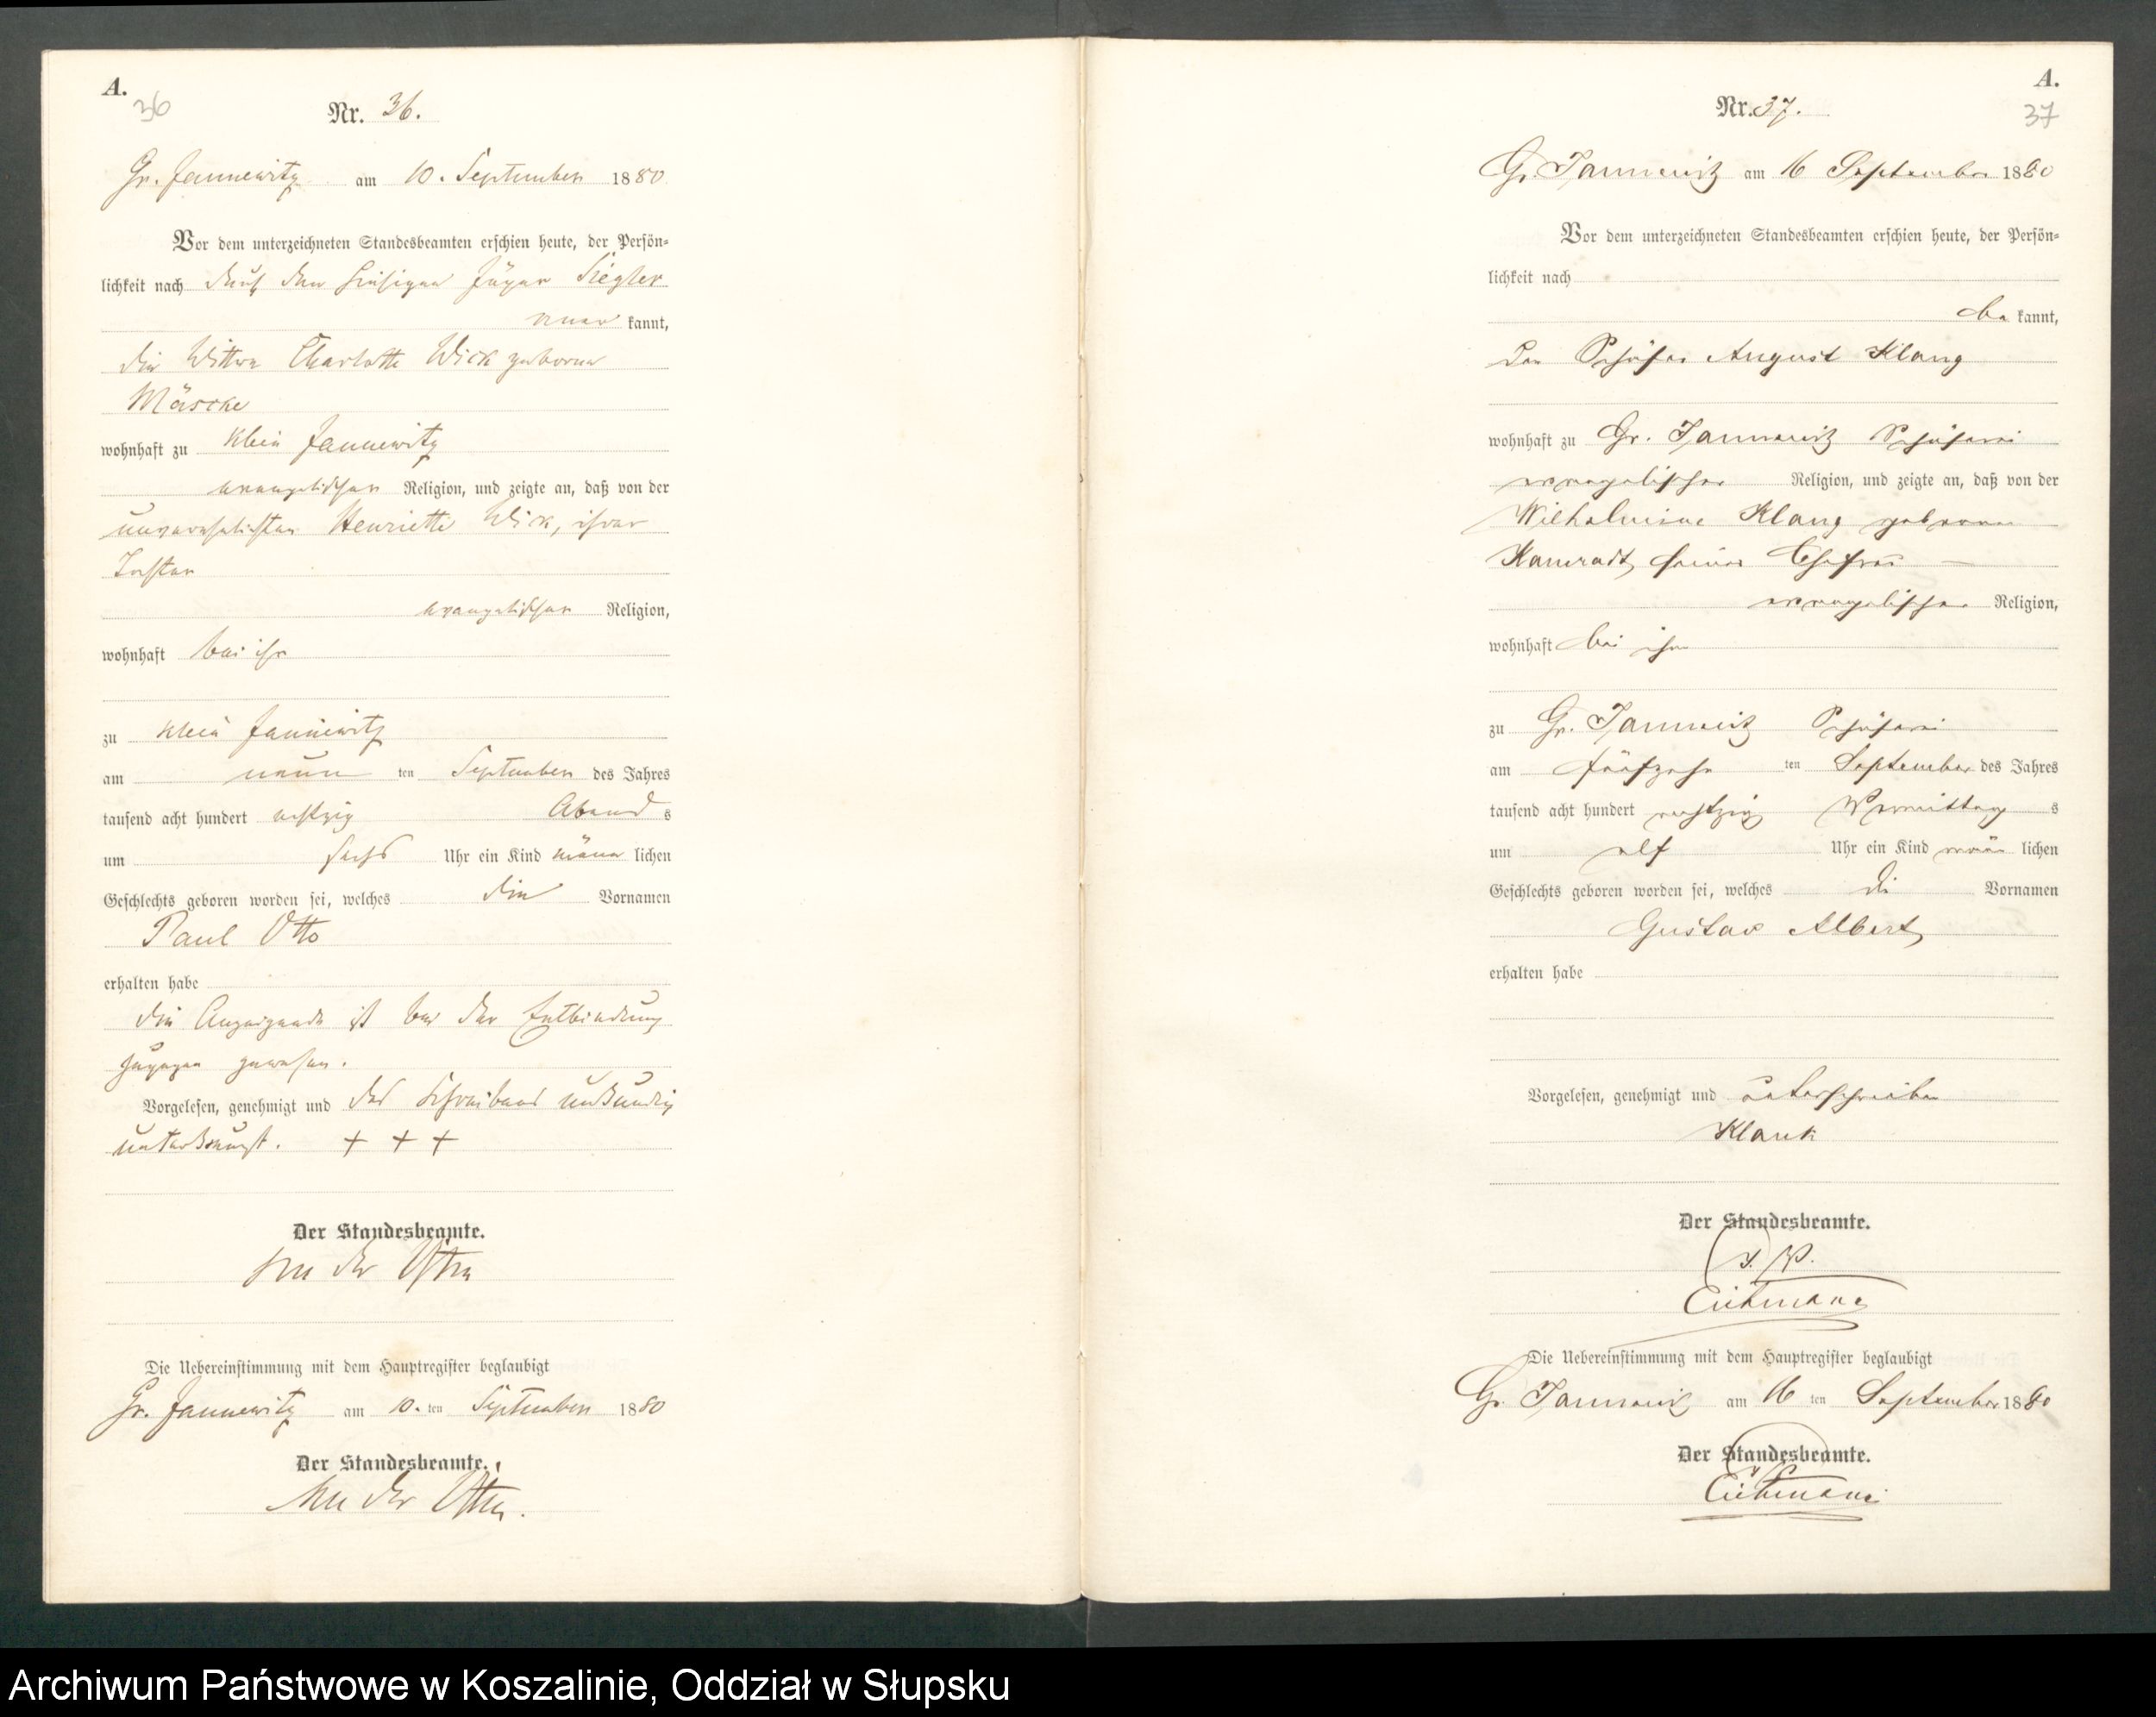 A.
36
Nr. 36.
Gr. Jannewitz am 10. September 1880
Vor dem unterzeichneten Standesbeamten erschien heute, der Persön=
lichkeit nach durch den hiesigen Jäger Siegler
aner kannt,
die Wittwe Charlotte Wick geborne
Mäscke
wohnhaft zu Klein Jannewitz
evangelischer Religion, und zeigte an, daß von der
unverehelichten Henriette Wick, ihrer
Tochter
evangelischer Religion,
wohnhaft bei ihr
zu Klein Jannewitz
am neun ten September des Jahres
tausend acht hundert achtzig Abend s
um sechs Uhr ein Kind männ lichen
Geschlechts geboren worden sei, welches die Vornamen
Paul Otto
erhalten habe
die Anzeigende ist bei der Entbindung
zugegen gewesen.
Vorgelesen, genehmigt und des Schreibens unkundig
unterkreuzt. + + +
Der Standesbeamte.
von der Osten
Die Uebereinstimmung mit dem Hauptregister beglaubigt
Gr. Jannewitz am 10. ten September 1880
Der Standesbeamte.
von der Osten.
A.
37
Nr. 37.
Gr. Jannewitz am 16 September 1880
Vor dem unterzeichneten Standesbeamten erschien heute, der Persön=
lichkeit nach
be kannt,
der Schäfer August Klang
wohnhaft zu Gr. Jannewitz Schäferei
evangelischer Religion, und zeigte an, daß von der
Wilhelmine Klang geborene
Kamradt, seiner Ehefrau
evangelischer Religion,
wohnhaft bei ihm
zu Gr. Jannewitz Schäferei
am fünfzehn ten September des Jahres
tausend acht hundert achtzig Vormittag s
um elf Uhr ein Kind männ lichen
Geschlechts geboren worden sei, welches die Vornamen
Gustav Albert
erhalten habe
Vorgelesen, genehmigt und unterschrieben
Klank
Der Standesbeamte.
I. V.
Die Uebereinstimmung mit dem Hauptregister beglaubigt
Gr. Jannewitz am 16 ten September 1880
Der Standesbeamte.
Archiwum Państwowe w Koszalinie, Oddział w Słupsku